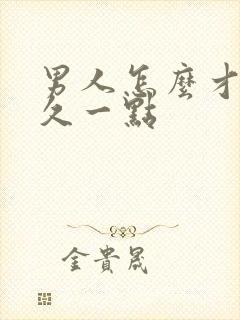 男人怎麼才
久一點
金貴晟